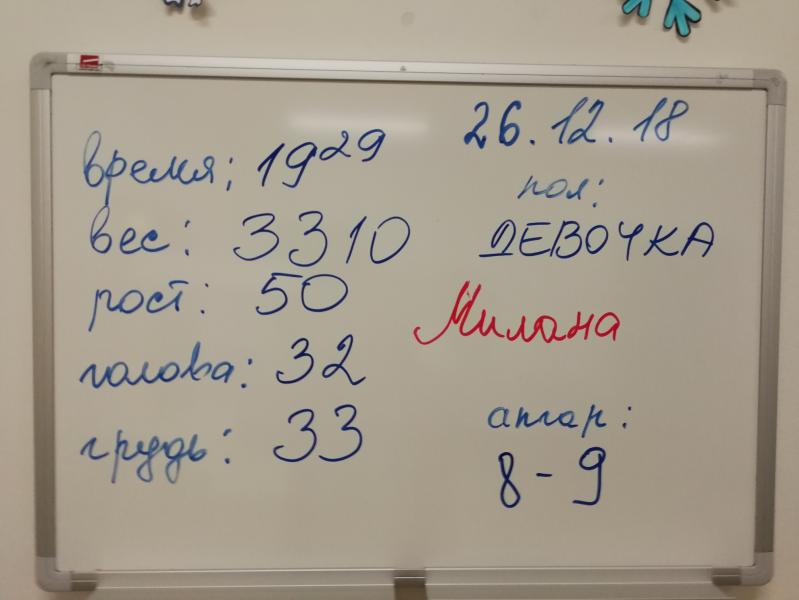 26.12.18
время; 19²⁹
пол:
вес: 3310
ДЕВОЧКА
рост: 50
Милана
голова: 32
апгар:
грудь: 33
8-9